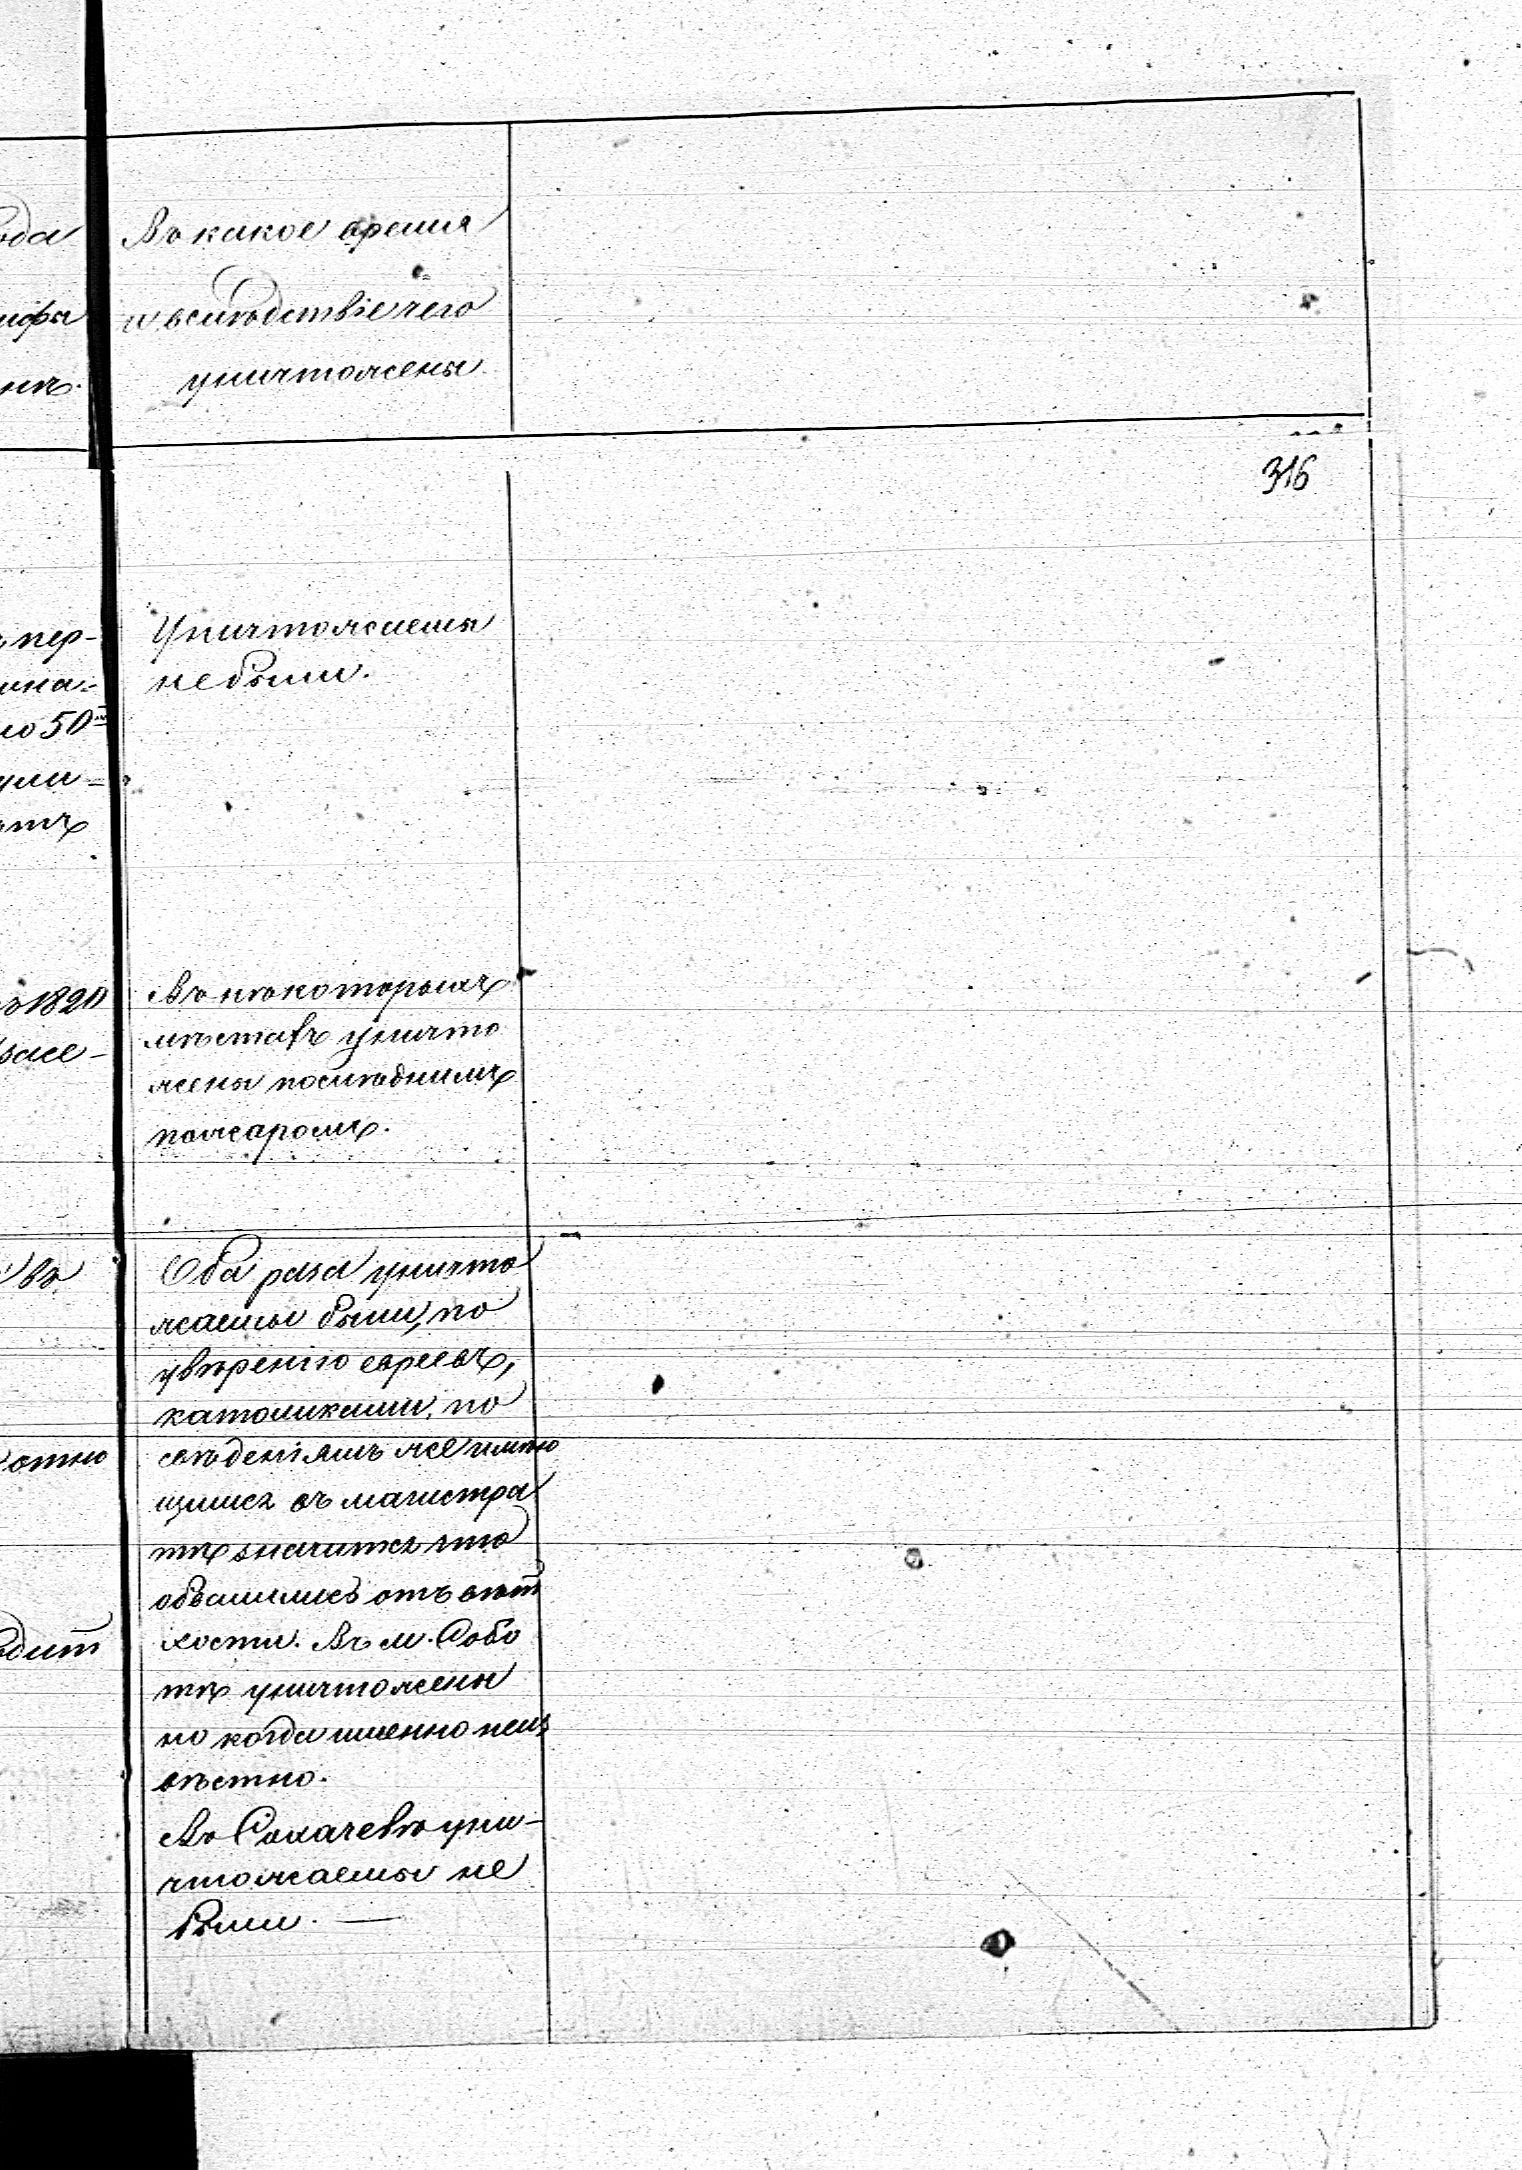 ода
Въ какое время
ифы
и вслѣдствіе чего
нъ.
уничтожены
316
пер-
Уничтожаемы
ина-
не были.
ло 50
ули-
отъ
1820
Въ нѣкоторыхъ
мѣстахъ уничто
жены послѣднимъ
пожаромъ.
въ
Оба раза уничто
жаемы были, по
увѣренію евреевъ,
католиками, по
отно
свѣденіямъ же имѣю
щимся въ магистра
тѣ значится что
обвалились отъ вѣт
одит
хости. Въ м. Собо
тѣ уничтожены
но когда именно неиз
вѣстно.
Въ Сохачевѣ уни-
чтожаемы не
были. —